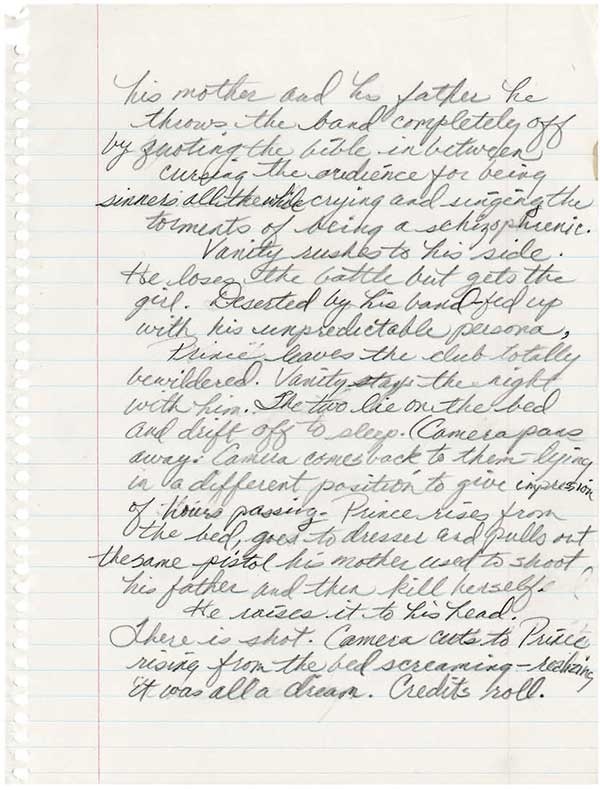 his mother and his father he
throws the band completely off
by quoting the bible in between
cursing the audience for being
sinners all the while crying and singing the
torments of being a schizophrenic.
Vanity rushes to his side.
He loses the battle but gets the
girl. Deserted by his band-fed up
with his unpredictable persona,
Prince leaves the club totally
bewildered. Vanity stays the night
with him. The two lie on the bed
and drift off to sleep. (Camera pans
away. Camera comes back to them-lying
in a different position to give impression
of hours passing. Prince rises from
the bed, goes to dresser and pulls out
the same pistol his mother used to shoot
his father and then kill herself.
He raises it to his head.
There is shot. Camera cuts to Prince
rising from the bed screaming-realizing
it was all a dream. Credits roll.